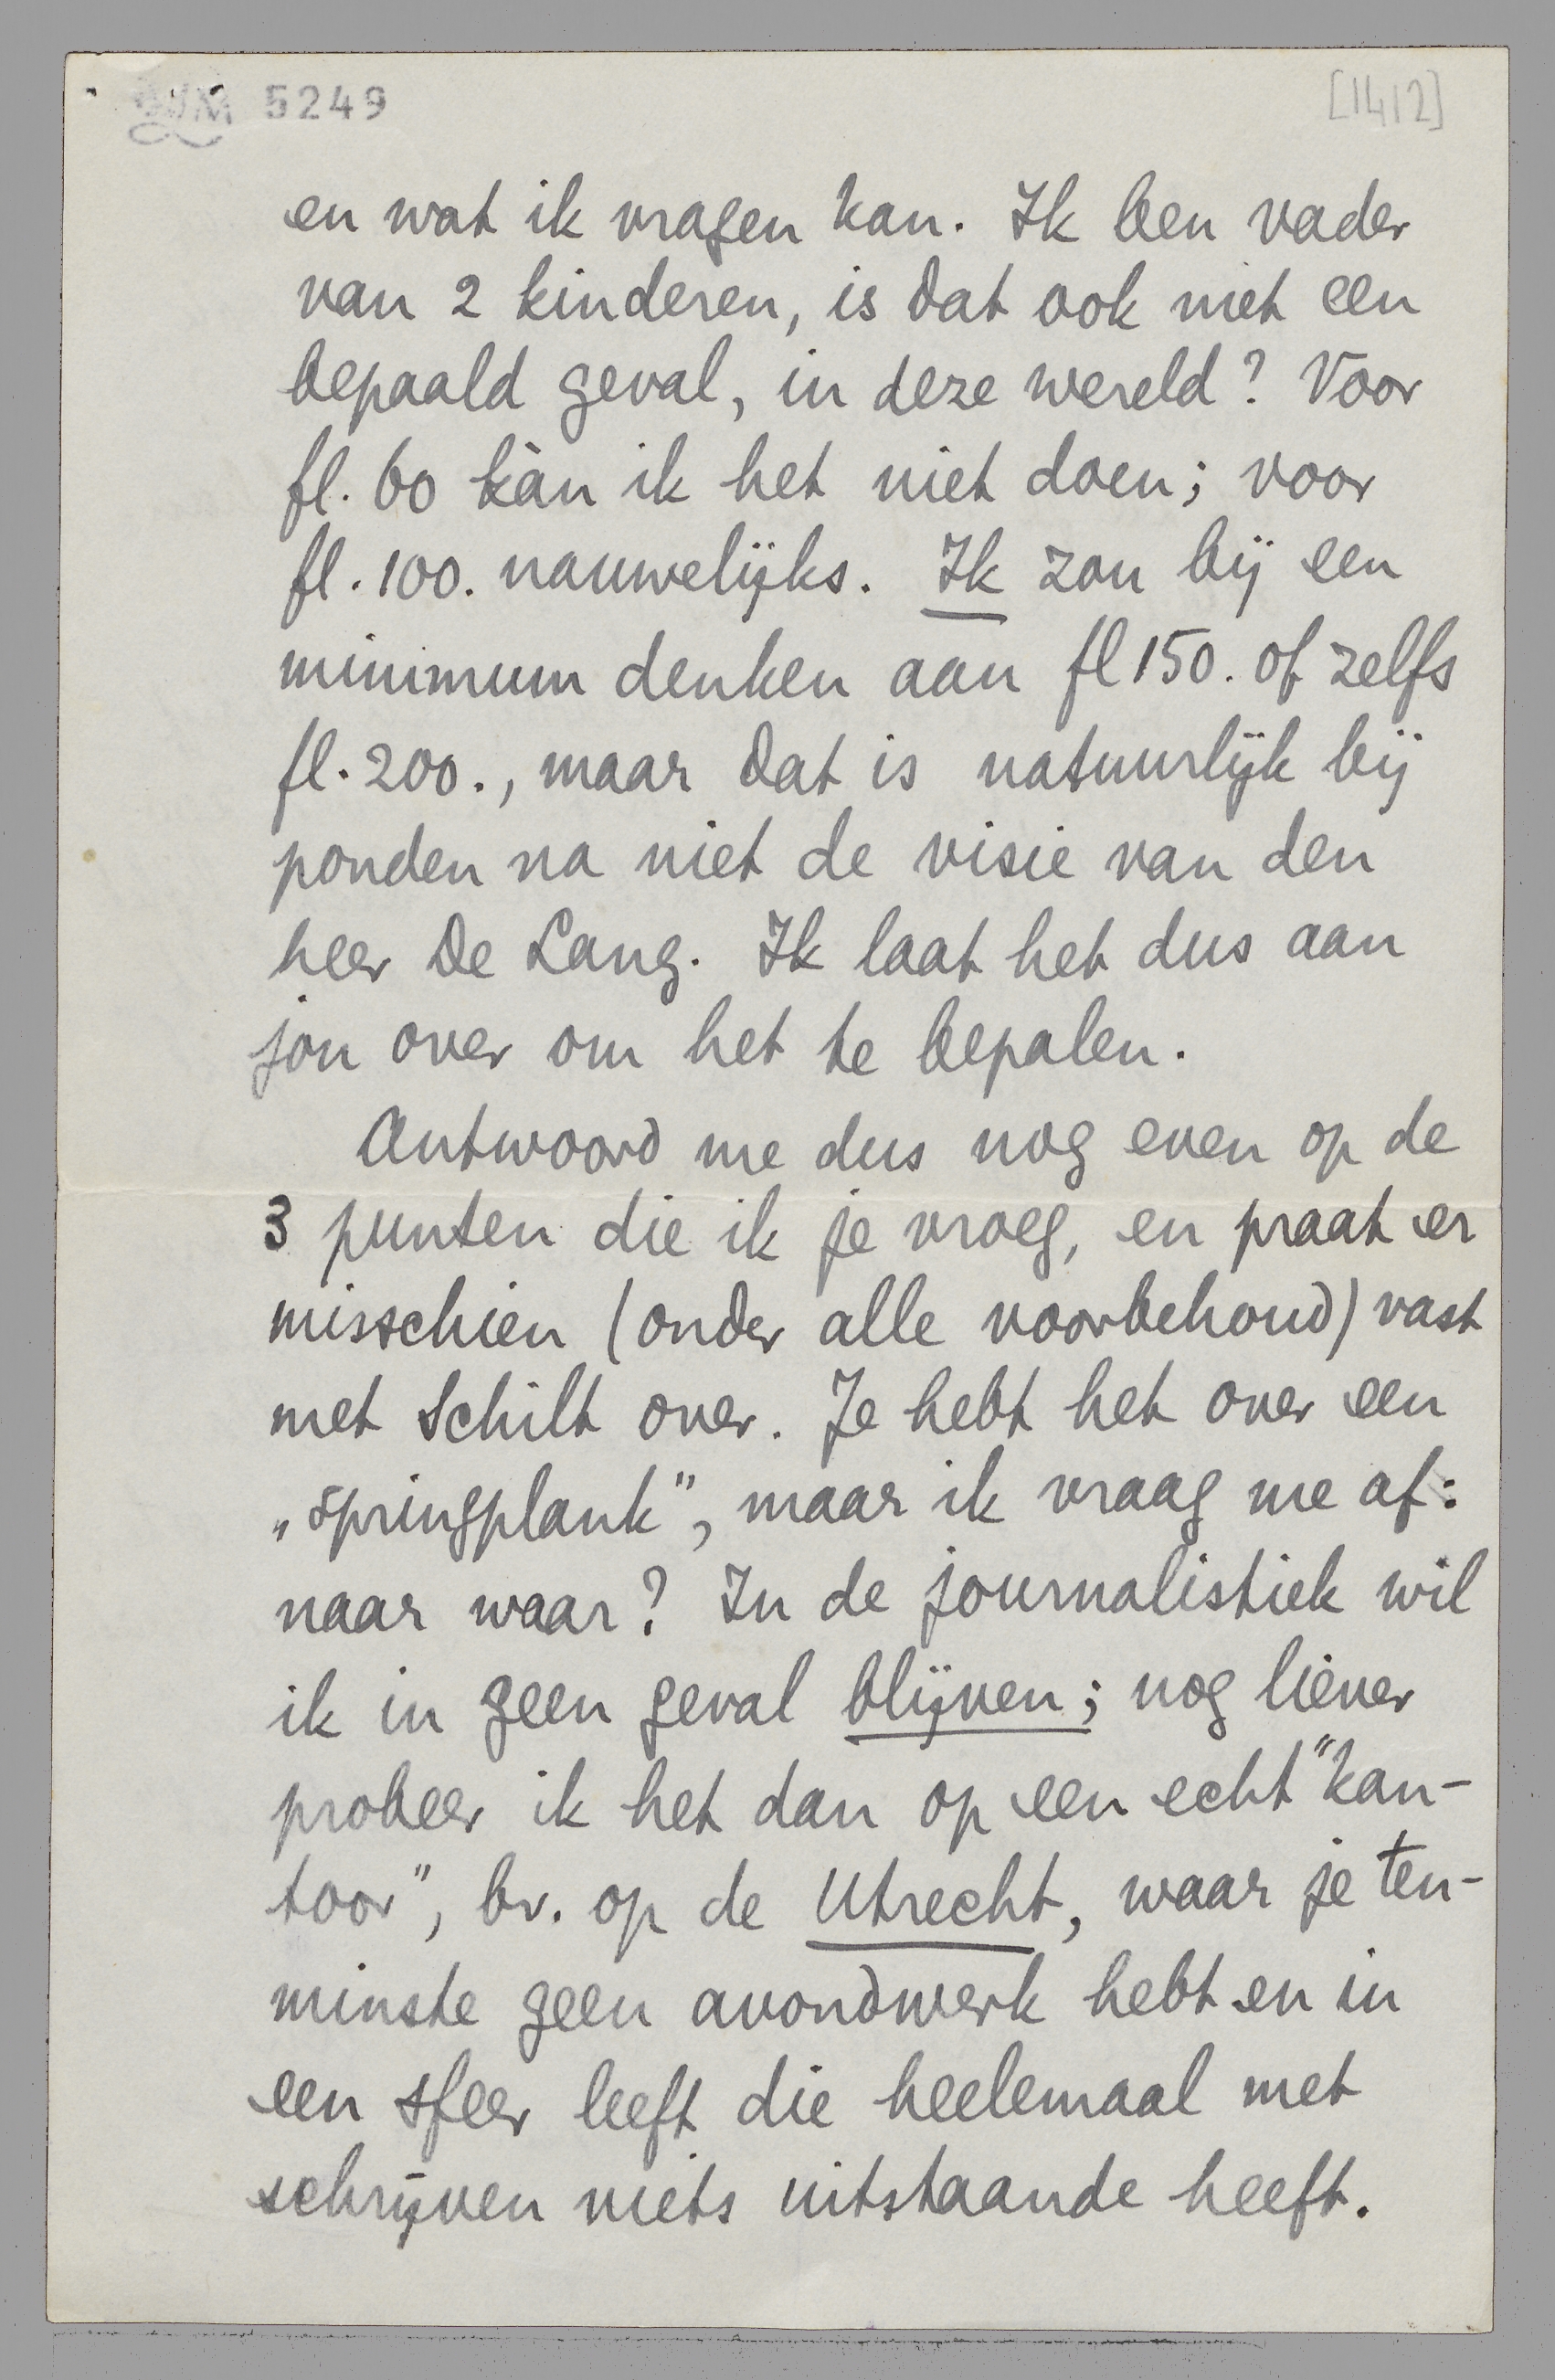 5249
[1412]
en wat ik vragen kan. Ik ben vader
van 2 kinderen, is dat ook niet een
bepaald geval, in deze wereld? Voor
fl. 60 kàn ik het niet doen; voor
fl. 100. nauwelijks. Ik zou bij een
minimum denken aan fl 150. of zelfs
fl. 200., maar dat is natuurlijk bij
ponden na niet de visie van den
heer De Lang. Ik laat het dus aan
jou over om het te bepalen.
Antwoord me dus nog even op de
3 punten die ik je vroeg, en praat er
misschien (onder alle voorbehoud) vast
met Schilt over. Je hebt het over een
„springplank”, maar ik vraag me af:
naar waar? In de journalistiek wil
ik in geen geval blijven; nog liever
probeer ik het dan op een echt "kan-
toor”, bv. op de Utrecht, waar je ten-
minste geen avondwerk hebt en in
een sfeer leeft die heelemaal met
schrijven niets uitstaande heeft.